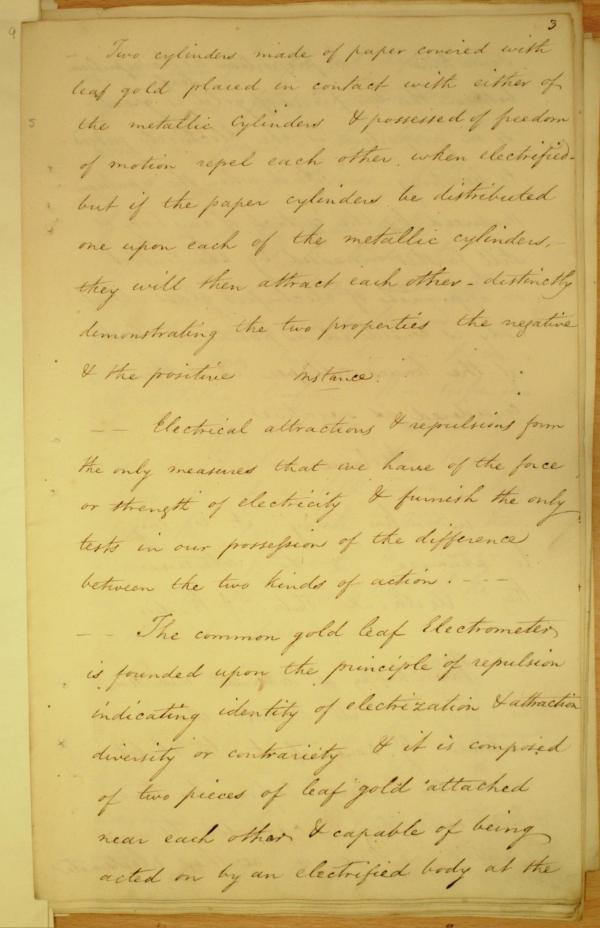 3
— Two cylinders made of paper covered with
leaf gold placed in contact with either of
the metallic Cylinders & possessed of freedom
of motion repel each other when electrified –
but if the paper cylinders be distributed
one upon each of the metallic cylinders, –
they will then attract each other – distinctly
demonstrating the two properties the negative
& the positive instance.
— — Electrical attractions & repulsions form
the only measures that we have of the force
or strength of electricity & furnish the only
tests in our possession of the difference
between the two kinds of action. – – –
— — The common gold leaf Electrometer
is founded upon the principle of repulsion
indicating identity of electrization & attraction
diversity or contrariety & it is composed
of two pieces of leaf gold attached
near each other & capable of being
acted on by an electrified body at the